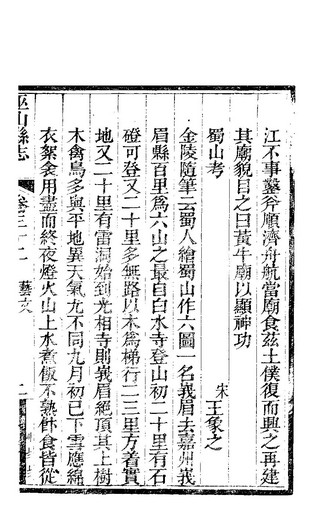 江不事鑿斧順濟舟航當廟食茲土僕復而興之再建
其廟貌目之曰黃牛廟以顯神功
蜀山考
宋王象之
金陵隨筆云蜀人繪蜀山作六圖一名峩眉去嘉州峩
眉縣百里爲六山之最自白水寺登山初二十里有石
磴可登又二十里多無路以木爲梯行二三里方着實
地又二十里有雷洞始到光相寺則峩眉絕頂其上樹
木禽鳥多與平地異天氣尤不同九月初已下雪應綿
衣絮食用盡而終夜燈火山上水煮飯不熟飯食皆從
巫山縣志
卷三十二
藝文